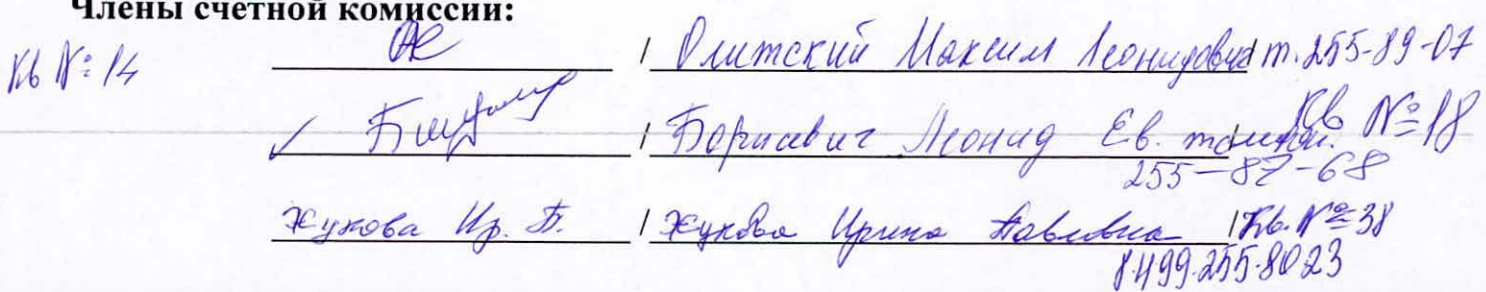 Члены счетной комиссии:
Кв № 14 / Олитский Максим Леонидович / т. 255-89-07
/ Борисевич Леонид Ев. Кв № 18
255-87-68
Жукова Ир. П. / Жукова Ирина Павловна / Кв. № 38
8.499.255-80-23